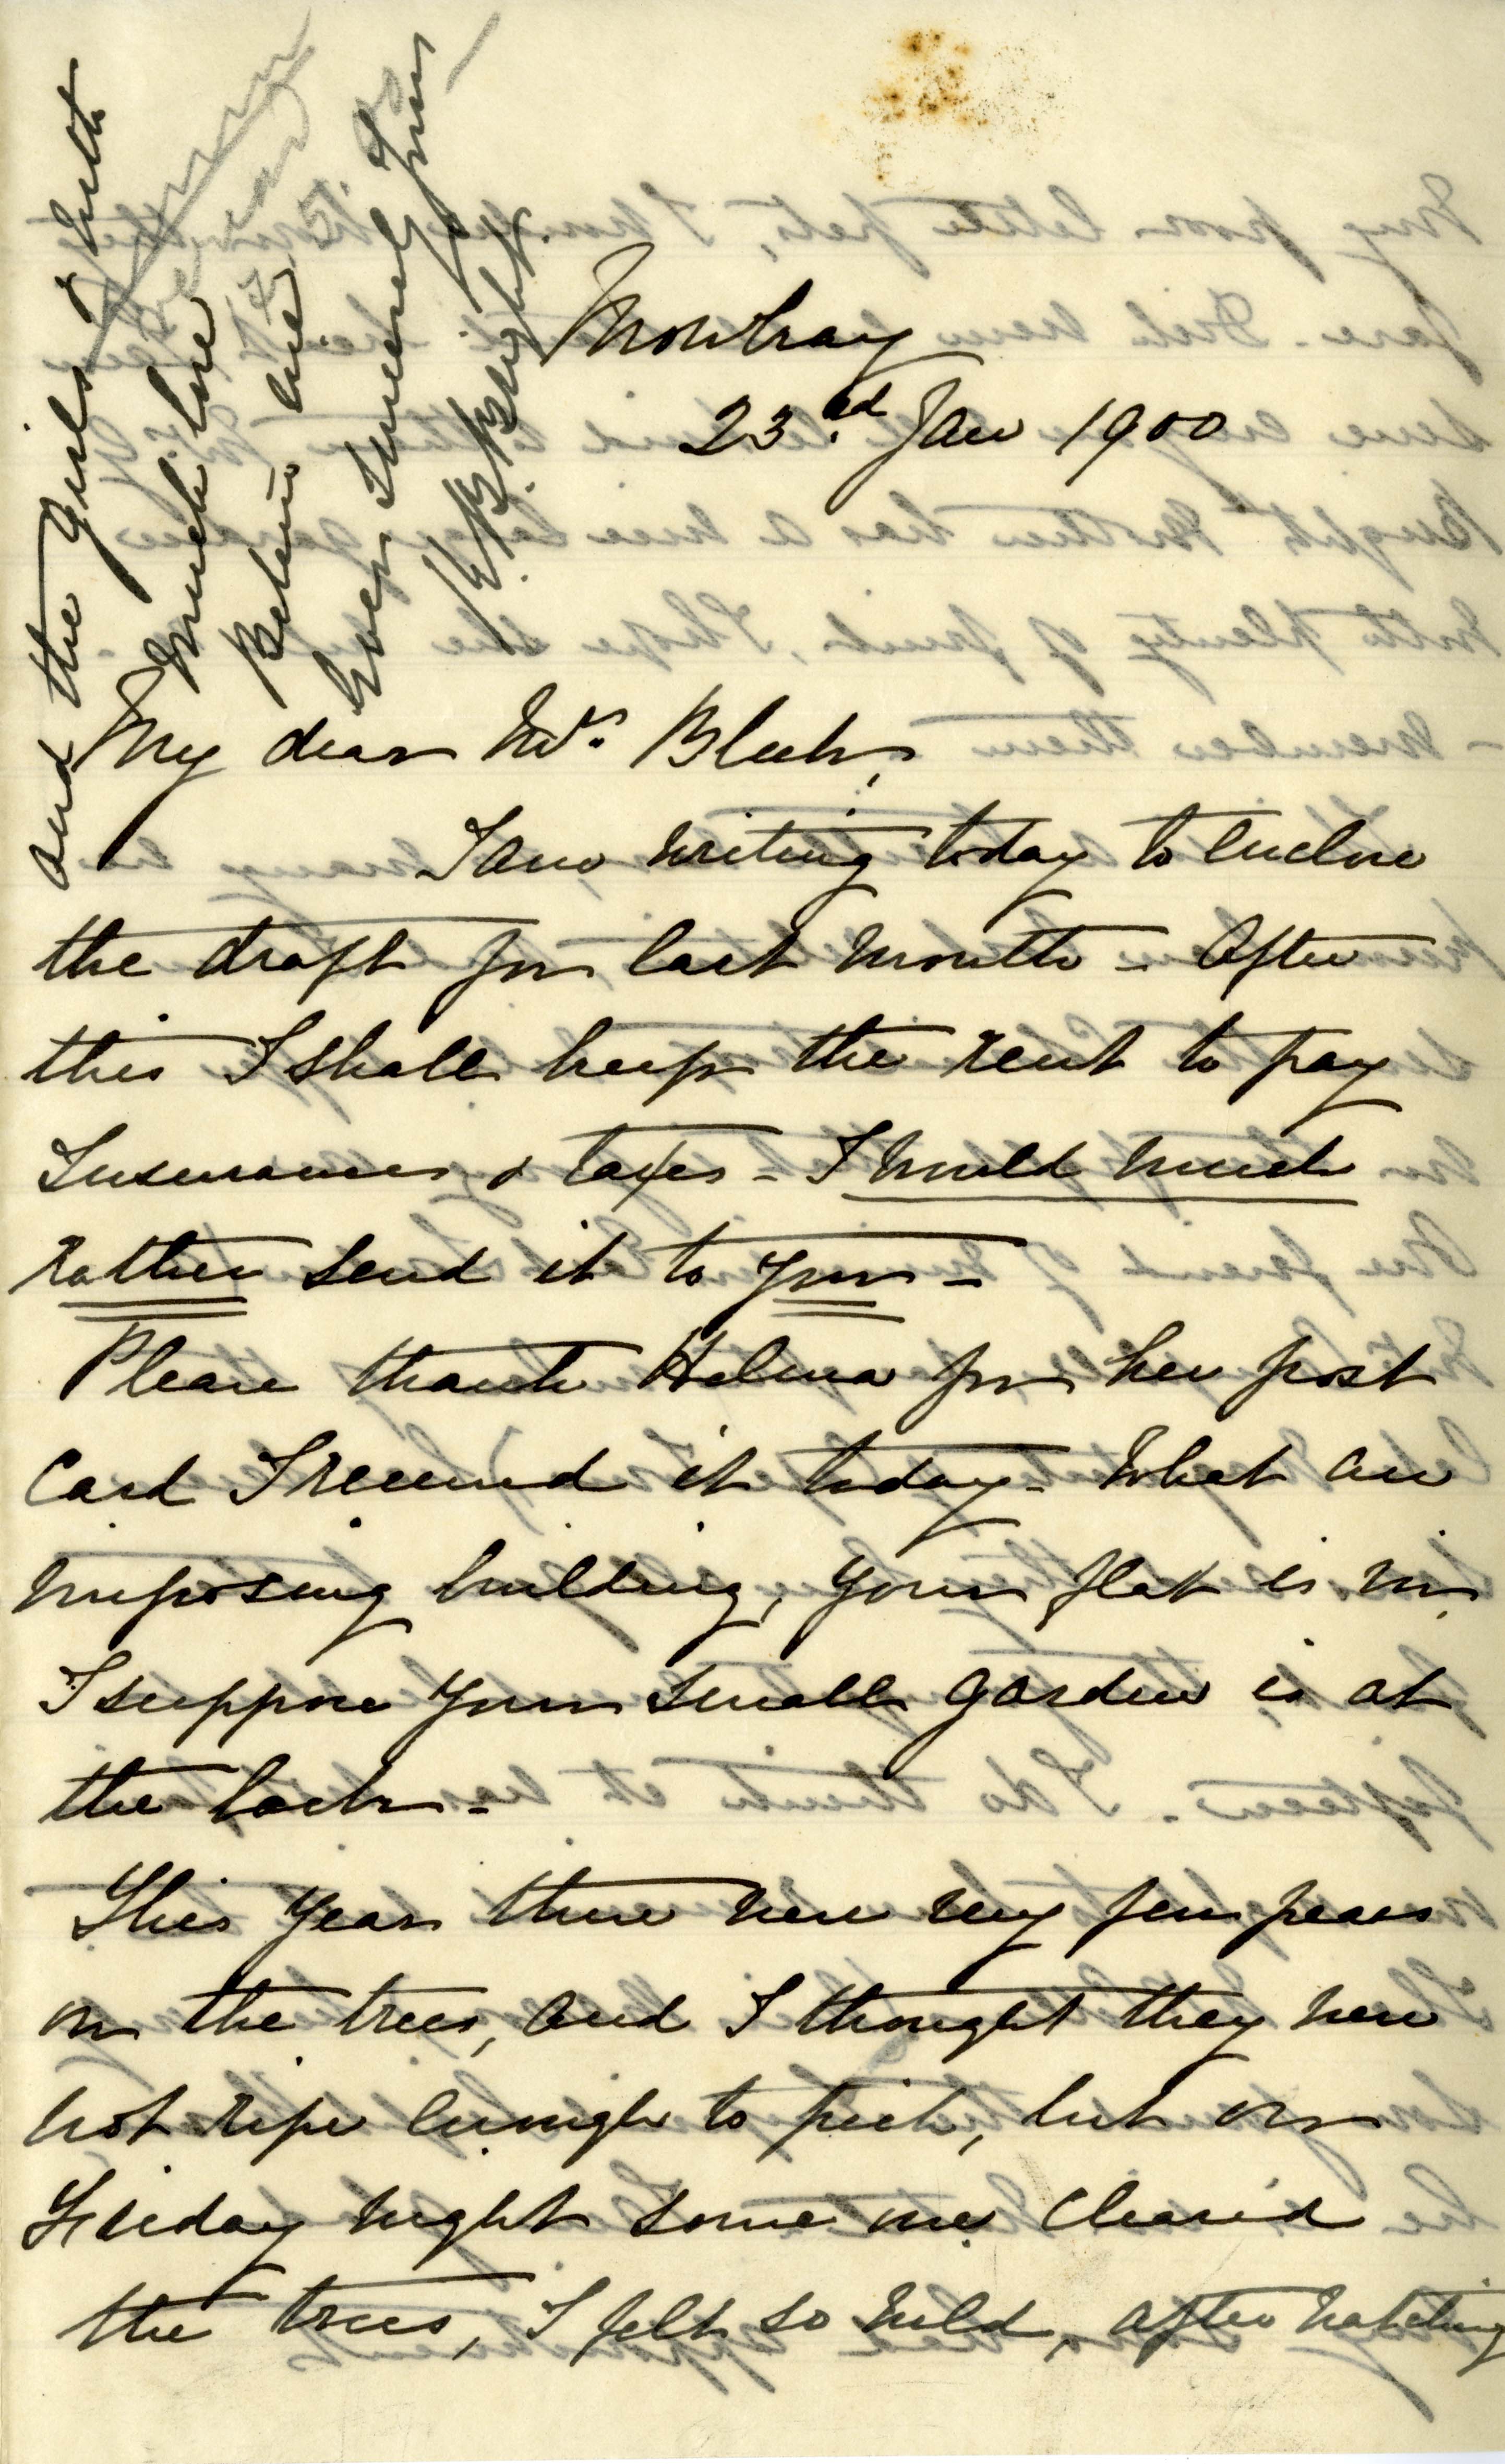 Mowbray
23rd Jan 1900
My dear Mrs. Bleek,
I am writing today to enclose
the draft for last month – After
this I shall keep the rent to pay
Insurances & taxes – I would much
rather send it to you –
Please thank Helma for her post
Card I received it today – What an
imposing building, your flat is in,
I suppose your small garden is at
the back –
This year there were very few pears
on the trees, and I thought they were
not ripe enough to pick, but on
Friday night some one clear'd
the trees, I felt so wild, after watching
and the girls & with
much love
Believe me
Ever sincerely yours
Bright